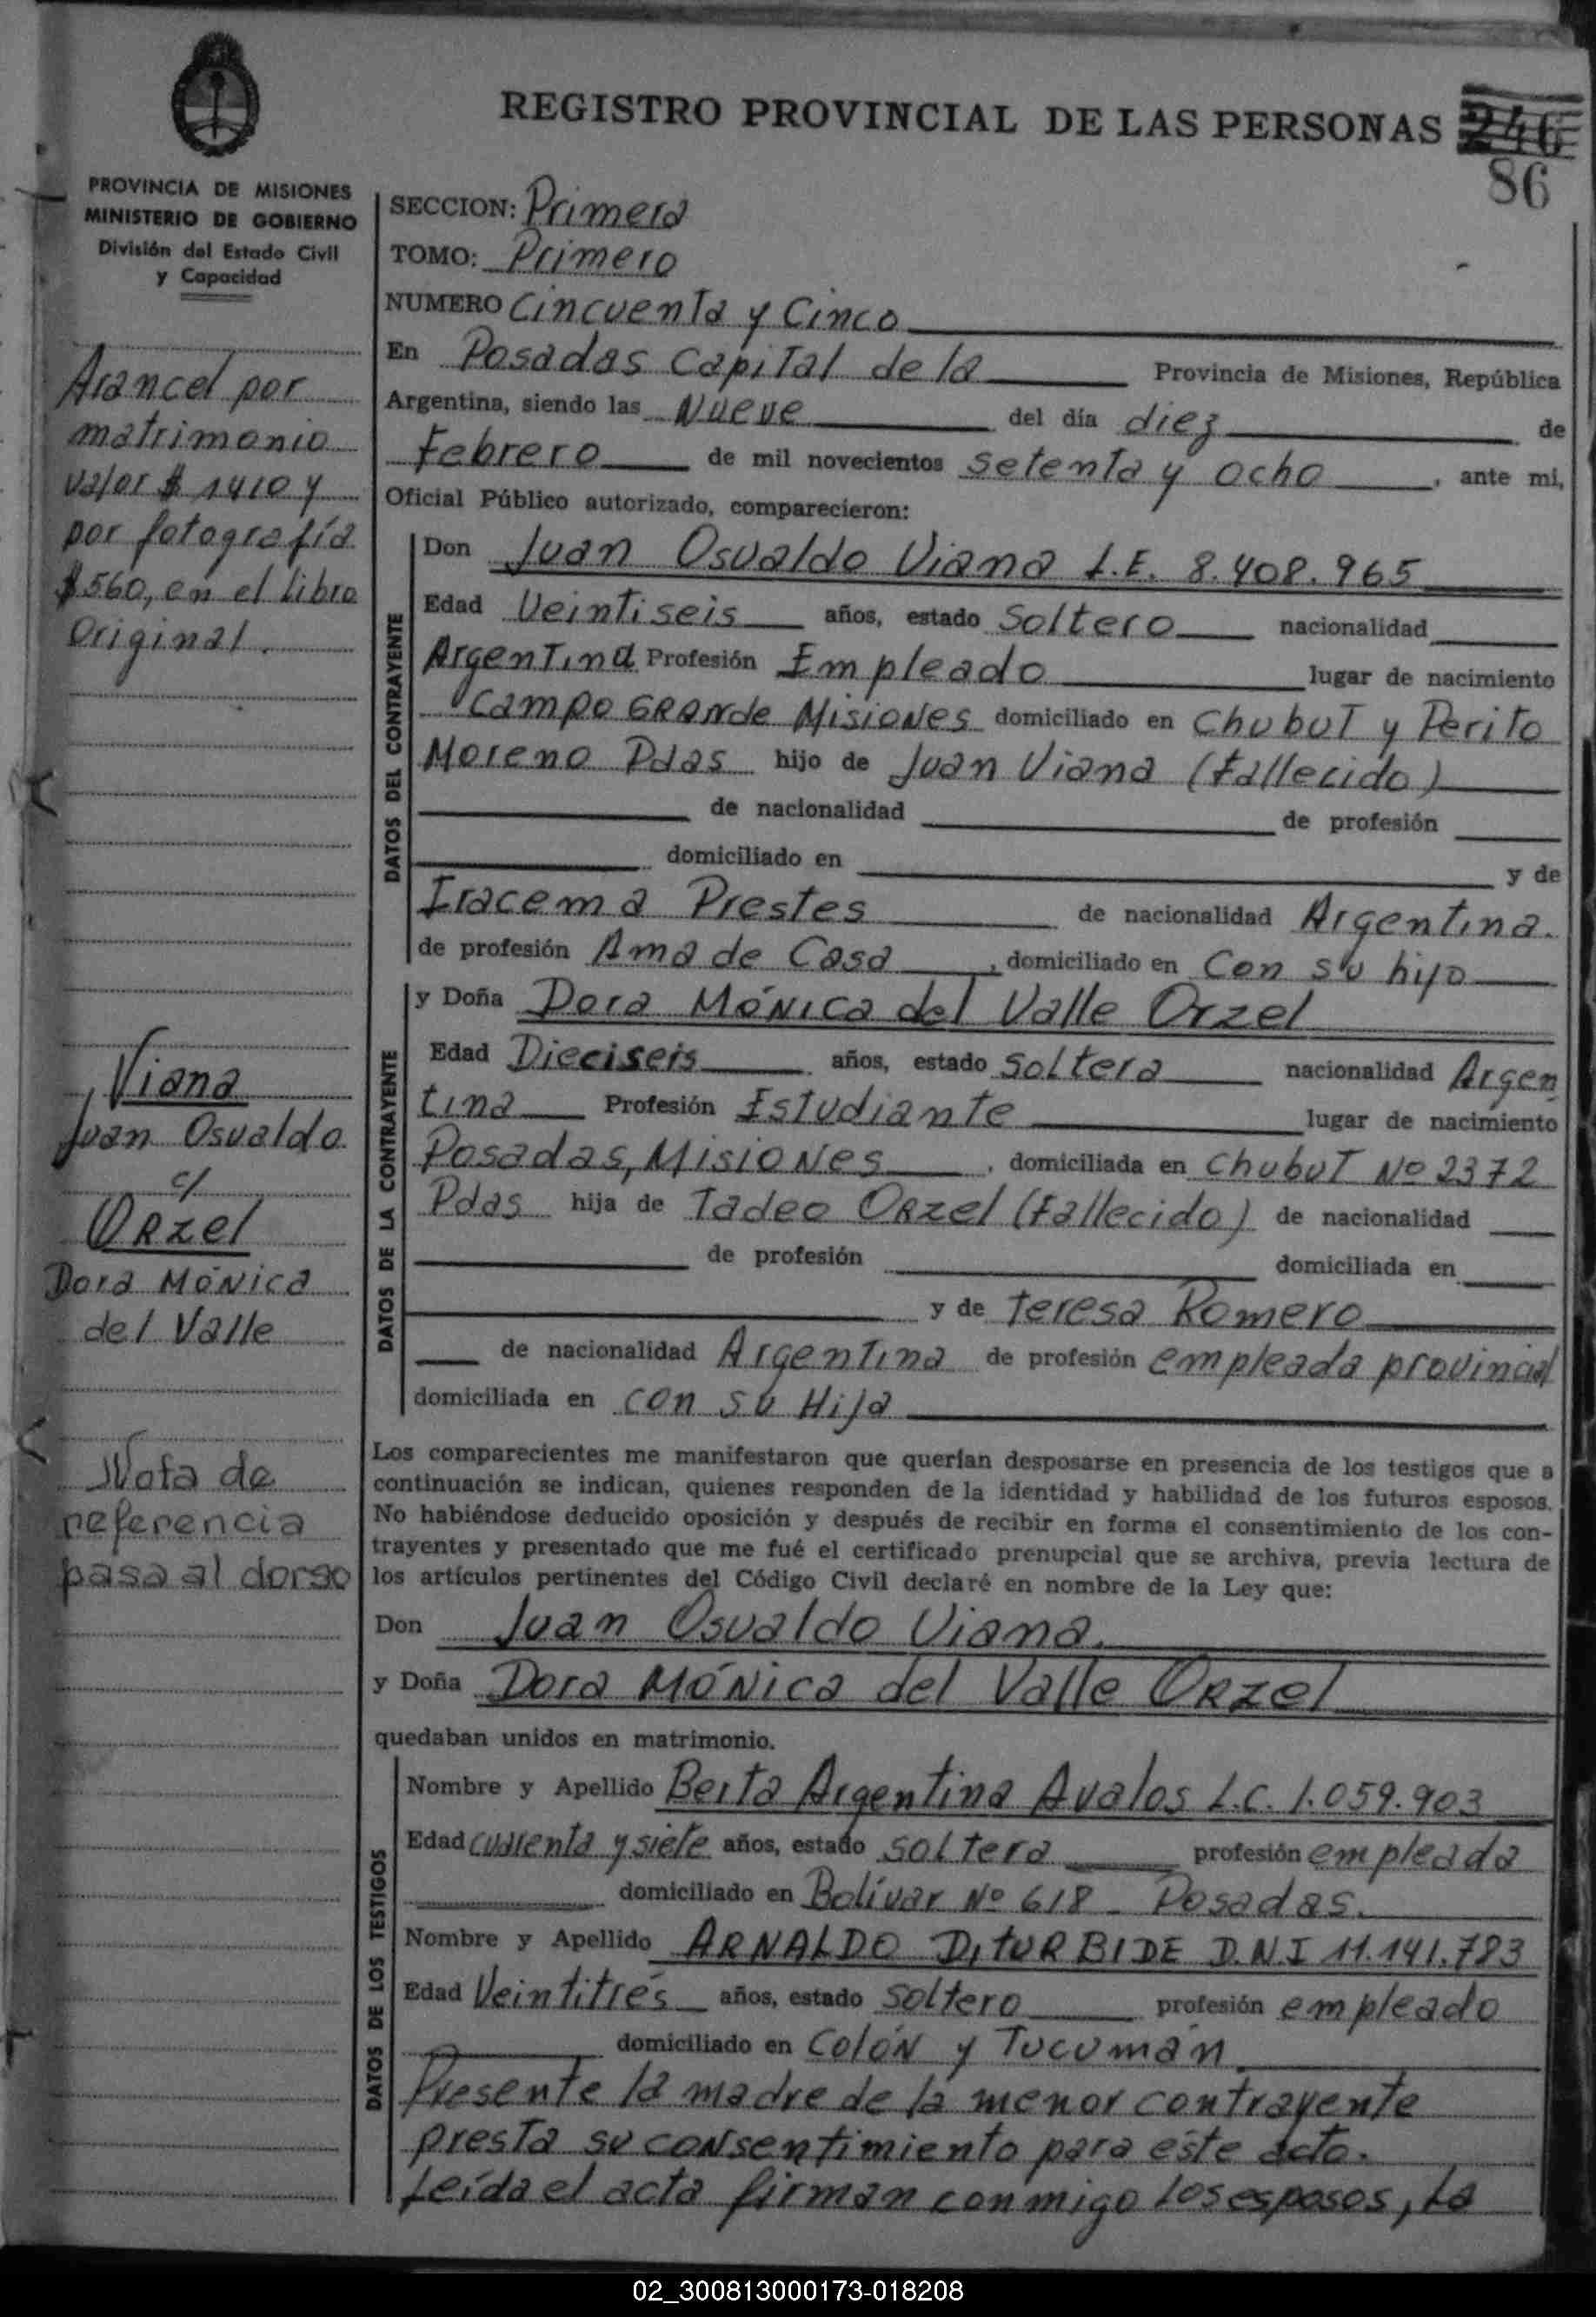 REGISTRO PROVINCIAL DE LAS PERSONAS 246
86
PROVINCIA DE MISIONES
MINISTERIO DE GOBIERNO
División del Estado Civil
y Capacidad
Arancel por
matrimonio
valor $ 1410 y
por fotografía
$560, en el libro
Original.
Viana
Juan Osvaldo
c/
ORzel
Dora MóNica
del Valle
Nota de
referencia
pasa al dorso
SECCION: Primera
TOMO: Primero
NUMERO Cincuenta y Cinco
En Posadas Capital de la Provincia de Misiones, República
Argentina, siendo las Nueve del día diez de
Febrero de mil novecientos setenta y ocho, ante mi,
Oficial Público autorizado, comparecieron:
DATOS DEL CONTRAYENTE
Don Juan Osvaldo Viana L.E. 8.408.965
Edad Veintiseis años, estado Soltero nacionalidad
Argentina Profesión Empleado lugar de nacimiento
Campo GRaNde MisioNes domiciliado en Chubut y Perito
Moreno Pdas hijo de Juan Viana (Fallecido)
de nacionalidad de profesión
domiciliado en y de
Iracema Prestes de nacionalidad Argentina.
de profesión Ama de Casa, domiciliado en Con su hijo
DATOS DE LA CONTRAYENTE
y Doña Dora MóNica del Valle Orzel
Edad Dieciseis años, estado Soltera nacionalidad Argen
tina Profesión Estudiante lugar de nacimiento
Posadas, MisioNes, domiciliada en Chubut Nº 2372
Pdas hija de Tadeo ORzel (Fallecido) de nacionalidad
de profesión domiciliada en
y de Teresa Romero
de nacionalidad Argentina de profesión empleada provincial
domiciliada en con su Hija
Los comparecientes me manifestaron que querían desposarse en presencia de los testigos que a
continuación se indican, quienes responden de la identidad y habilidad de los futuros esposos.
No habiéndose deducido oposición y después de recibir en forma el consentimiento de los con-
trayentes y presentado que me fué el certificado prenupcial que se archiva, previa lectura de
los artículos pertinentes del Código Civil declaré en nombre de la Ley que:
Don Juan Osvaldo Viana.
y Doña Dora MóNica del Valle ORzel
quedaban unidos en matrimonio.
DATOS DE LOS TESTIGOS
Nombre y Apellido Berta Argentina Avalos L.C. 1.059.903
Edad cuarenta y siete años, estado soltera profesión empleada
domiciliado en Bolívar Nº 618 - Posadas.
Nombre y Apellido ARNALDO DituRBIDE D.N.I 11.141.783
Edad Veintitrés años, estado soltero profesión empleado
domiciliado en ColóN y Tucumán.
Presente la madre de la menor contrayente
presta su consentimiento para este acto.
Leída el acta firman conmigo los esposos, la
02_300813000173-018208